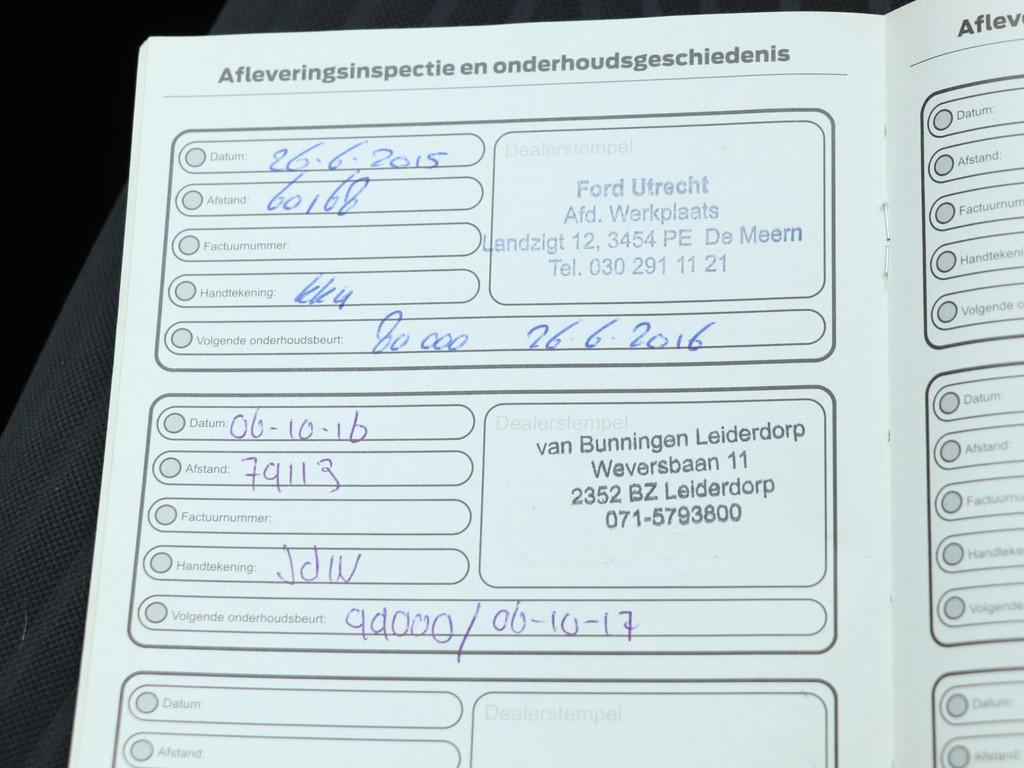 Afleveringsinspectie en onderhoudsgeschiedenis
Datum: 26-6-2015
Afstand: 60168
Factuurnummer:
Handtekening: kky
Volgende onderhoudsbeurt: 80 000 26-6-2016
Dealerstempel
Ford Utrecht
Afd. Werkplaats
Landzigt 12, 3454 PE De Meern
Tel. 030 291 11 21
Datum: 06-10-16
Afstand: 79113
Factuurnummer:
Handtekening: JdW
Volgende onderhoudsbeurt: 99000/06-10-17
Dealerstempel
van Bunningen Leiderdorp
Weversbaan 11
2352 BZ Leiderdorp
071-5793800
Datum:
Afstand:
Dealerstempel
Datum:
Afstand:
Datum:
Afstand:
Datum:
Afstand: